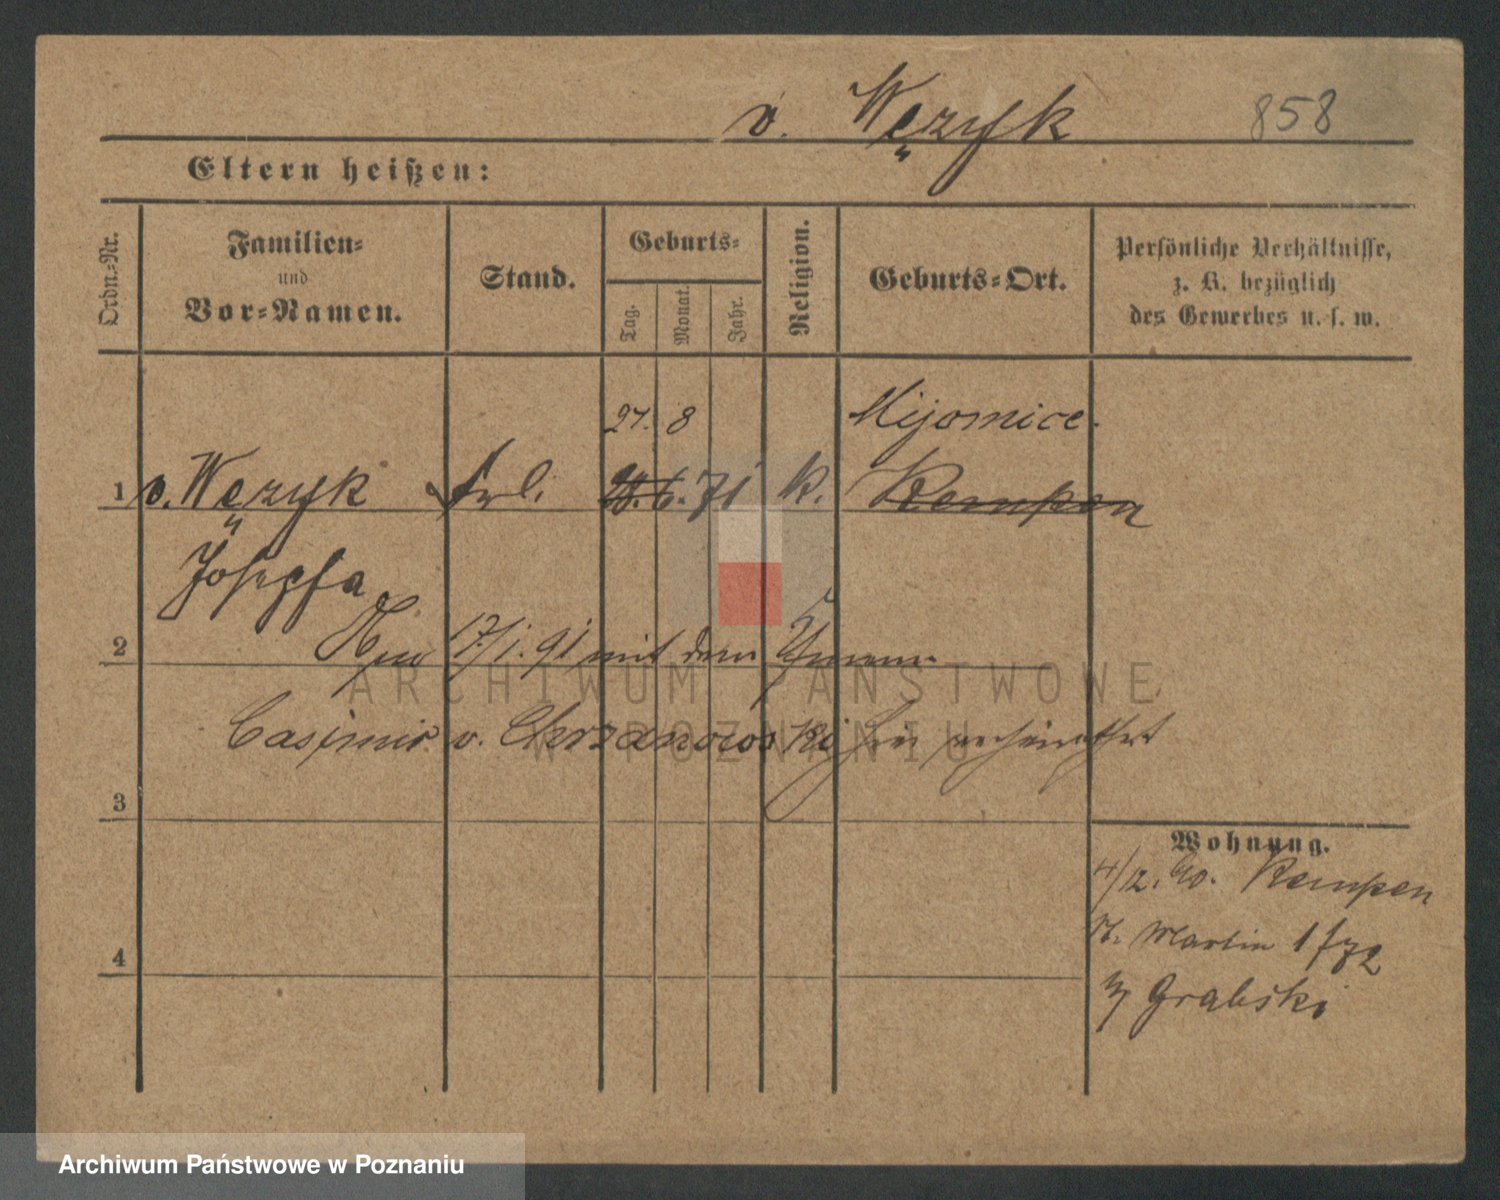 v. Węzyk 858
Eltern heißen:
Ordn.-Nr.
Familien-
und
Vor-Namen.
Stand.
Geburts-
Tag.
Monat.
Jahr.
Religion.
Geburts-Ort.
Persönliche Verhältnisse,
z. B. bezüglich
des Gewerbes u. s. w.
27. 8 Mijomice.
1 v. Węzyk Frl. 6. 71 k. Kempen
Josepha
2 17/1. 91 mit dem
Casimir v. Chrzanowski hier verheirathet
3
Wohnung.
4/12. 90. Kempen
St. Martin 1/72
b/ Grabski
4
ARCHIWUM PAŃSTWOWE
W POZNANIU
Archiwum Państwowe w Poznaniu